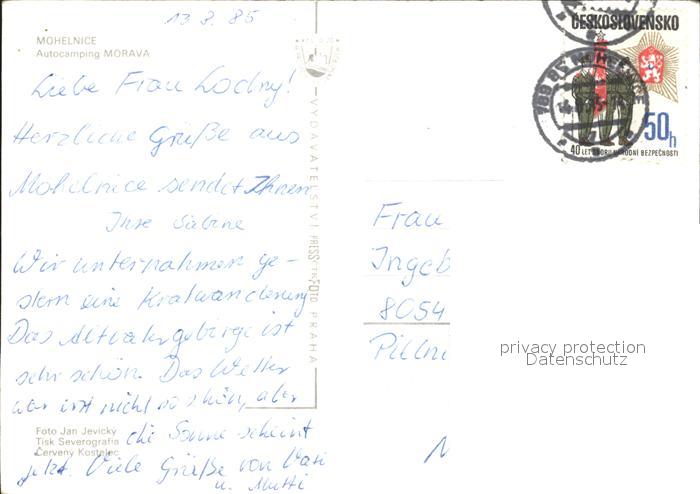 13.8.85
MOHELNICE
Autocamping MORAVA
Liebe Frau Lodny!
Herzliche Grüße aus
Mohelnice sendet Ihnen
Ihre Sabine
Wir unternahmen ge-
stern eine Kratwanderung
Das Altvatergebirge ist
sehr schön. Das Wetter
war erst nicht so schön, aber
die Sonne scheint
jetzt. Viele Grüße von Vati
u. Mutti
Foto Jan Jevický
Tisk Severografia
Červený Kostelec
VYDAVATELSTVÍ PRESSFOTO PRAHA
ČESKOSLOVENSKO
50h
40 LET SBORU NÁRODNÍ BEZPEČNOSTI
Frau
Ingeb
8054
Pillni
privacy protection
Datenschutz